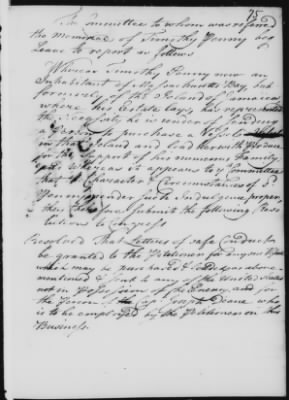 75
The Committee to whom was referred
the memorial of Timothy Penny beg
Leave to report as follows
Whereas Timothy Penny now an
Inhabitant of Massachusetts Bay, but
formerly of the Island of Jamaica
where his Estate lays, has represented
the Necessity he is under of sending
a Person to purchase a Vessel
in that Island and load her with Produce
for the Support of his numerous Family
and whereas it appears to your Committee
that the Character & Circumstances of Sd
Penny render such Indulgence proper,
they therefore submit the following Reso
lutions to Congress
Resolved That Letters of safe Conduct
be granted to the Petitioner for any
which may be purchased & loaded as above
mentioned & sent to any of the United States
not in Possession of the Enemy, and for
the Person of the Cap Joseph Deane who
is to be employed by the Petitioner on this
Business.